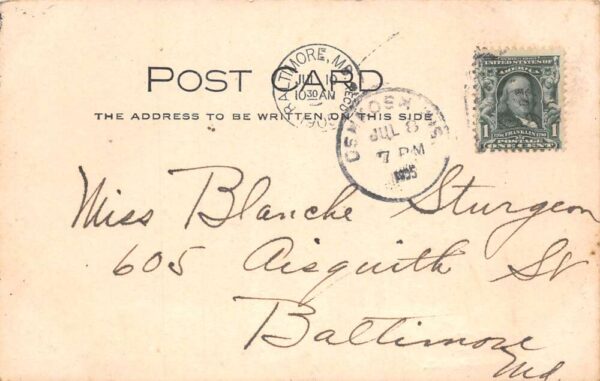 POST CARD
THE ADDRESS TO BE WRITTEN ON THIS SIDE
BALTIMORE, MD.
JUL 10
10 30 AM
OSHKOSH WIS.
JUL 8
7 PM
1905
UNITED STATES OF
AMERICA
1 FRANKLIN 1
POSTAGE
ONE CENT
Miss Blanche Sturgeon
605 Aisquith St
Baltimore
Md.